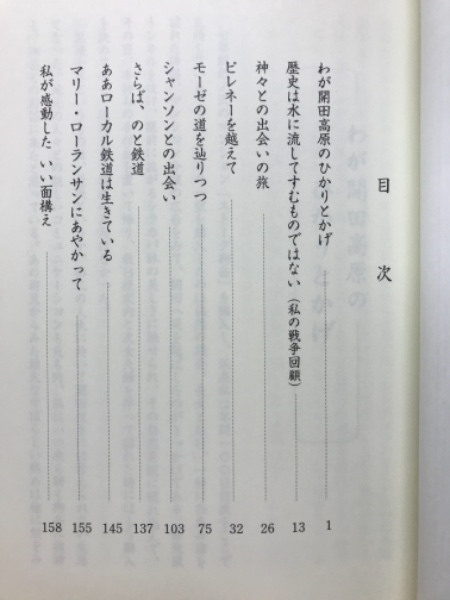 目次
わが開田高原のひかりとかげ 1
歴史は水に流してすむものではない（私の戦争回顧） 13
神々との出会いの旅 26
ピレネーを越えて 32
モーゼの道を辿りつつ 75
シャンソンとの出会い 103
さらば、のと鉄道 137
ああローカル鉄道は生きている 145
マリー・ローランサンにあやかって 155
私が感動した いい面構え 158